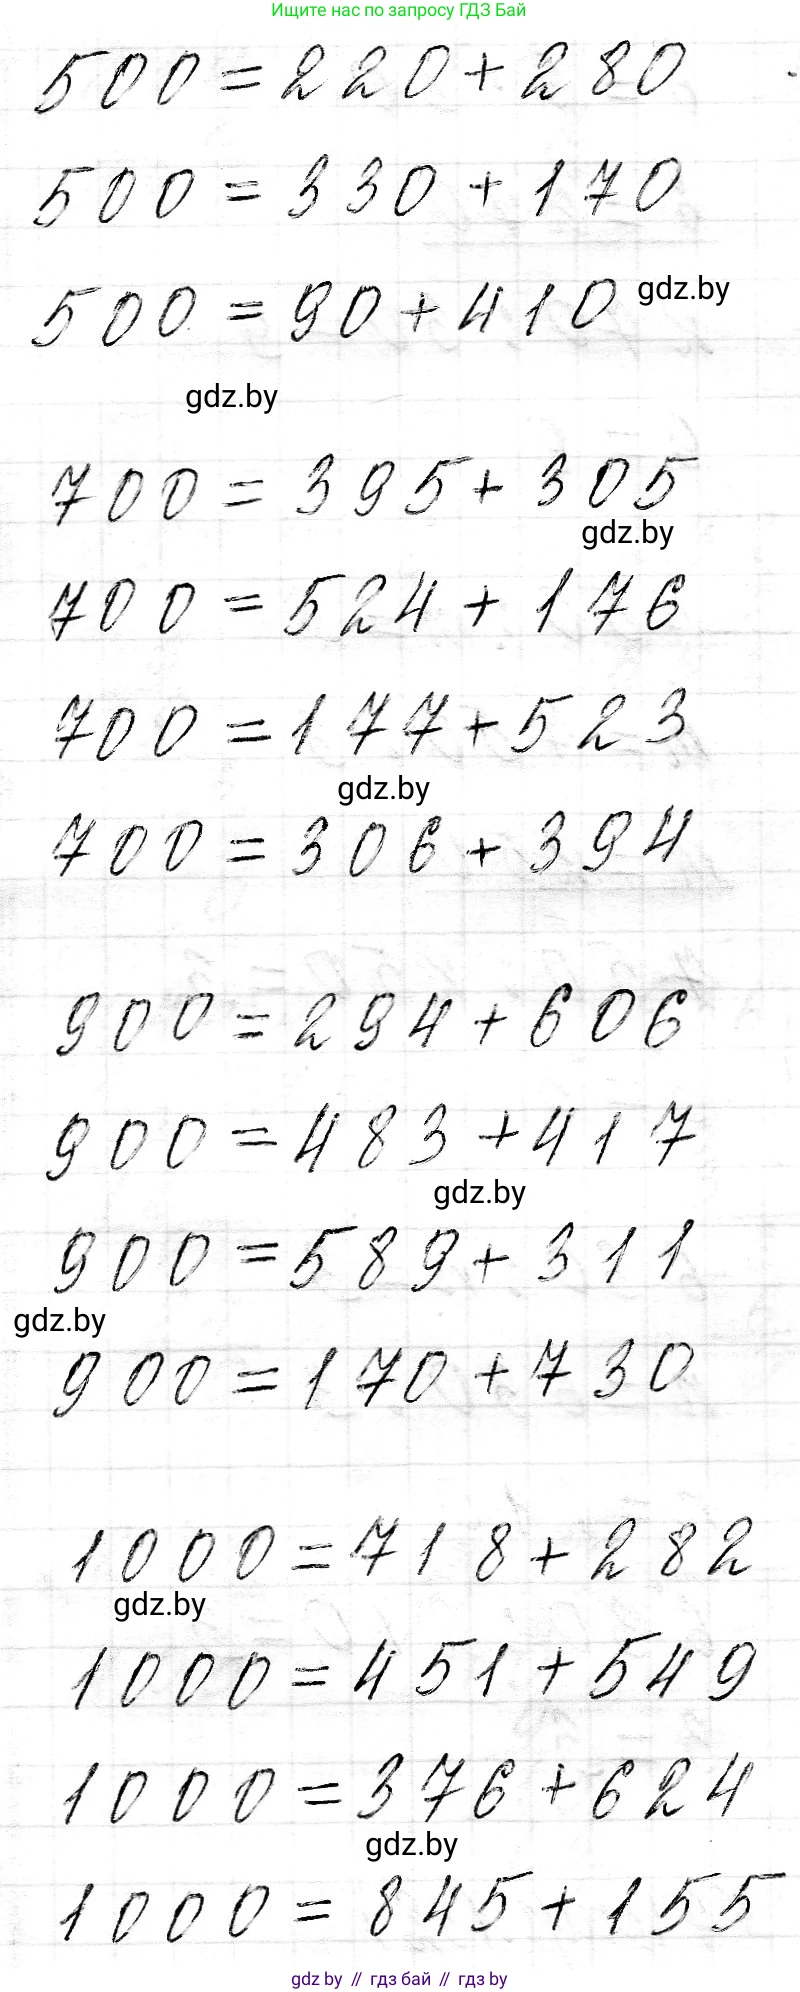 Ищите нас по запросу ГДЗ Бай
500=220+280
500=330+170
500=90+410 gdz.by
gdz.by
700=395+305
gdz.by
700=524+176
700=177+523
gdz.by
700=306+394
900=294+606
900=483+417
gdz.by
900=589+311
gdz.by
900=170+730
1000=718+282
gdz.by
1000=451+549
1000=376+624
gdz.by
1000=845+155
gdz.by // гдз бай // гдз by